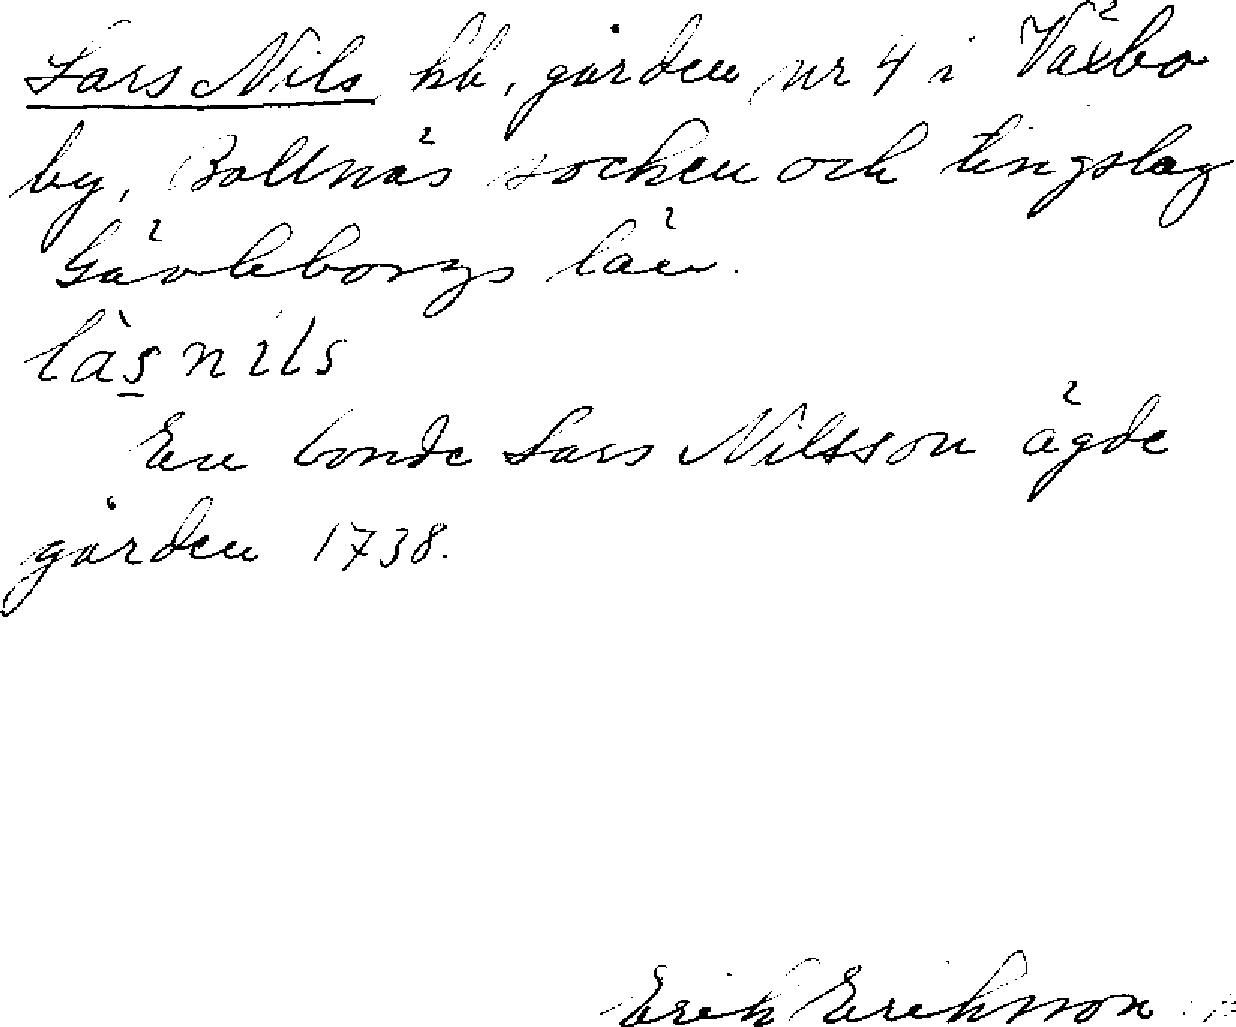 Lars Nils hb, gården nr 4 i Växbo
by, Bollnäs socken och tingslag
Gävleborgs län.
làs̲nils
En bonde Lars Nilsson ägde
gården 1738.
Erik Eriksson